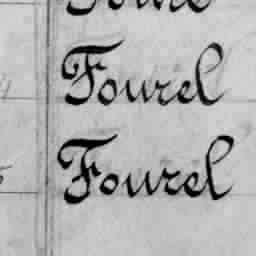 Fourel
Fourel